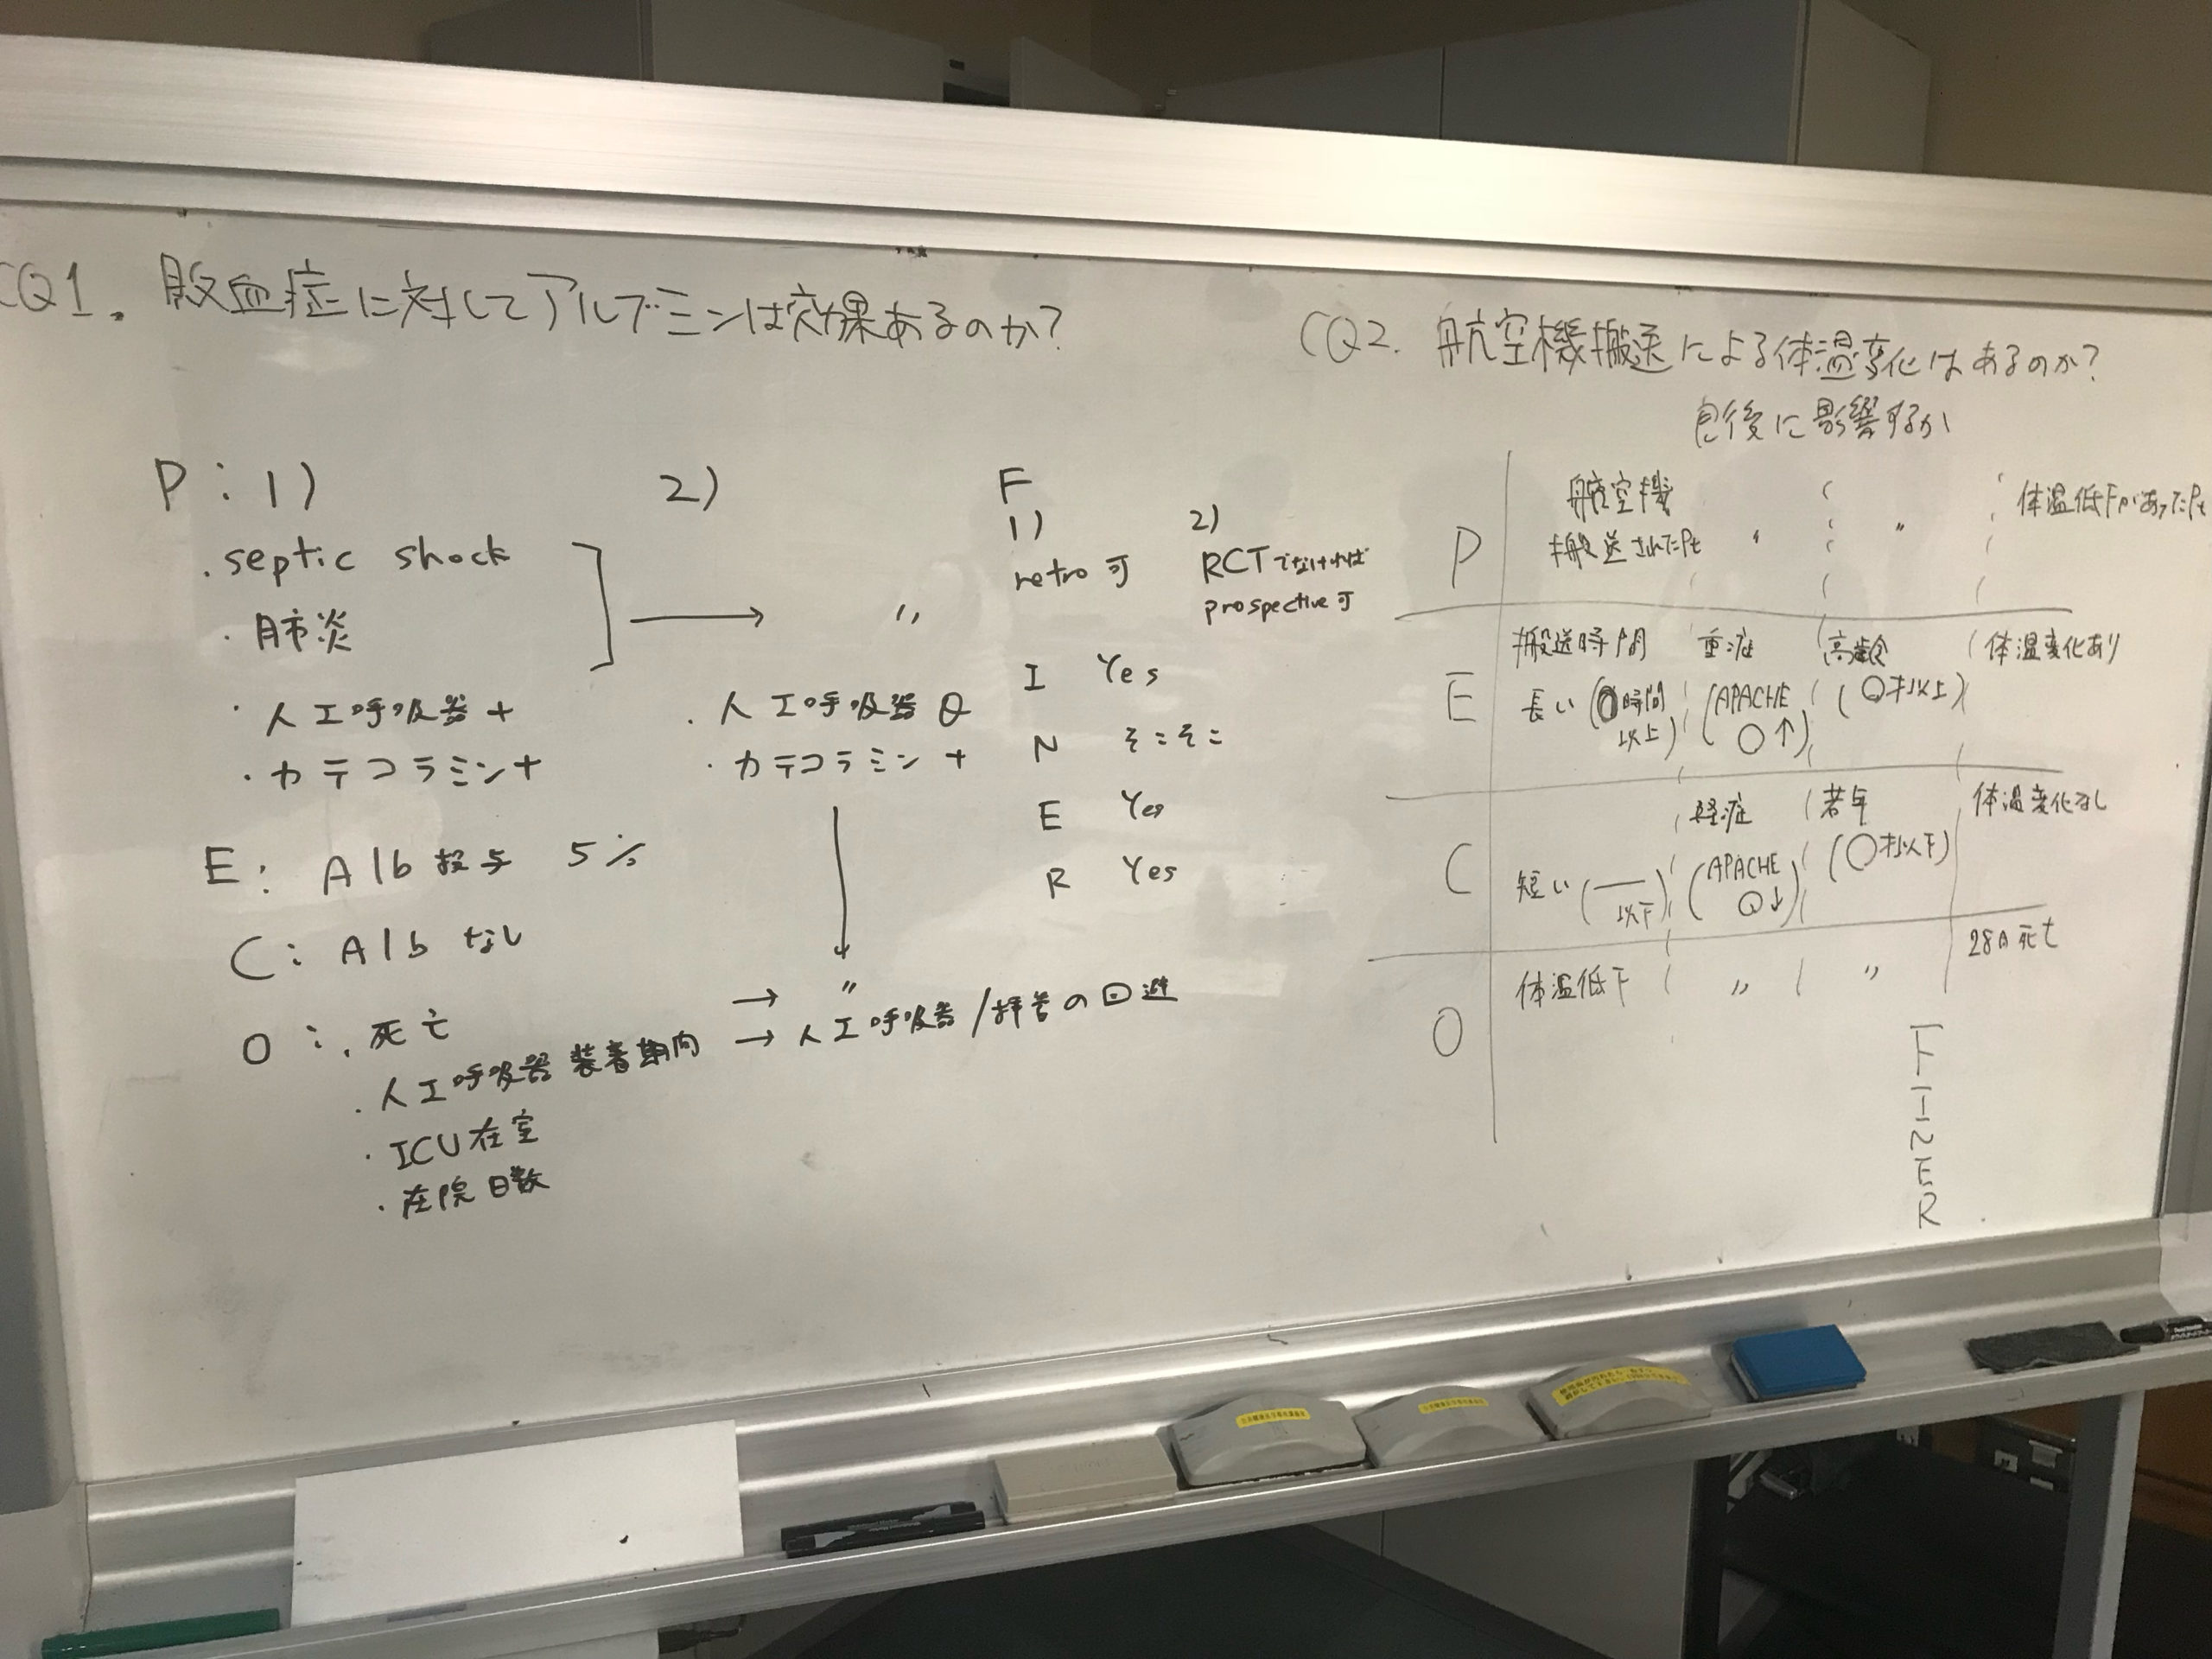 CQ1. 敗血症に対してアルブミンは効果あるのか?
P:1)
・septic shock
・肺炎
・人工呼吸器+
・カテコラミン+
E: Alb投与 5%
C: Alb なし
O:・死亡
・人工呼吸器装着期間 → 人工呼吸器/挿管の回避
・ICU在室
・在院日数
2)
→ 〃
・人工呼吸器⊖
・カテコラミン+
→ 〃
F
1) 2)
retro可 RCTでなければ
prospective可
I Yes
N そこそこ
E Yes
R Yes
CQ2. 航空機搬送による体温変化はあるのか?
予後に影響するか
P 航空機 〃 〃 体温低下があったPt
搬送されたPt
E 搬送時間 重症 高齢 体温変化あり
長い(〇時間以上) (APACHE 〇↑) (〇才以上)
C 軽症 若年 体温変化なし
短い(― 以下) (APACHE 〇↓) (〇才以下)
O 体温低下 〃 〃 28日死亡
F
I
N
E
R